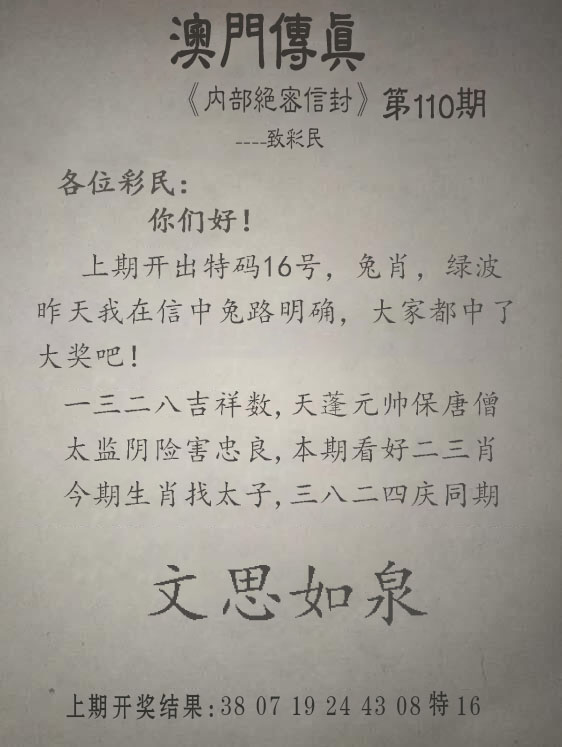 澳門傳眞
《内部絕密信封》第110期
----致彩民
各位彩民：
你们好！
上期开出特码16号，兔肖，绿波
昨天我在信中兔路明确，大家都中了
大奖吧！
一三二八吉祥数,天蓬元帅保唐僧
太监阴险害忠良,本期看好二三肖
今期生肖找太子,三八二四庆同期
文思如泉
上期开奖结果:38 07 19 24 43 08 特 16